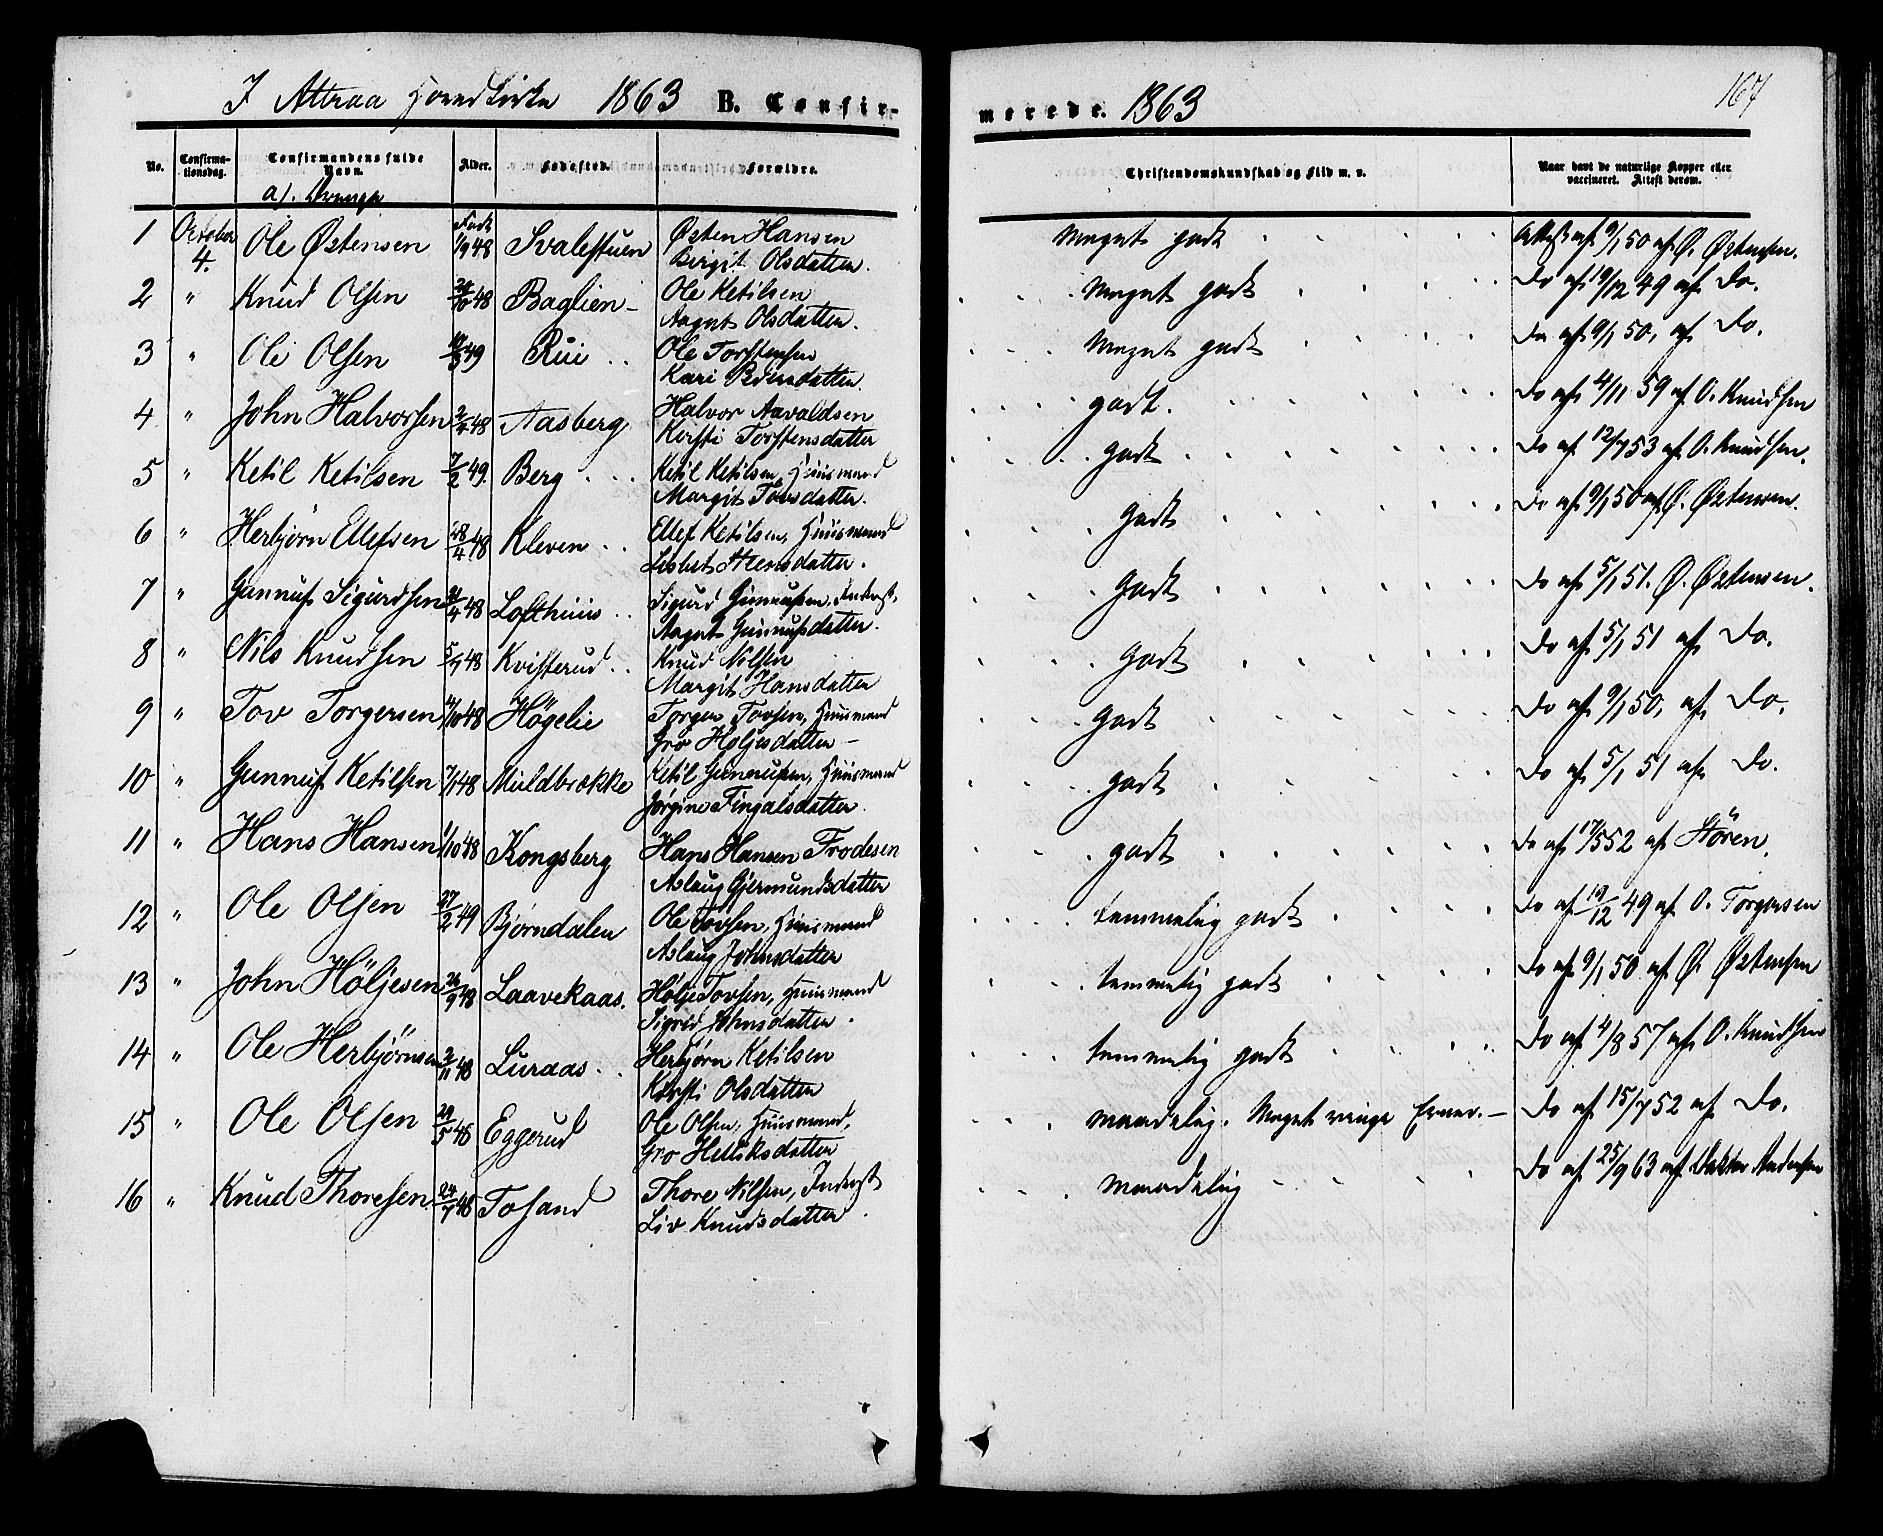 I Attraa Hovedkirke 1863 B. Confir-
merede. 1863
167
No. Confirma-tionsdag. Confirmandens fulde Navn. Alder. Fødested. Forældre.
Christendomskundskab og Flid m. v. Naar havt de naturlige Kopper eller vaccineret. Attest derom.
a). Drenge
1 October 4. Ole Østensen Født 1/9 48 Svalestuen Østen Hansen
Bergit Olsdatter.
Meget godt Attest af 9/1 50 af Ø. Østensen.
2 " Knud Olsen /10 48 Baglien - Ole Ketilsen
Aagat Olsdatter.
Meget godt Do af 19/12 49 af Do.
3 " Ole Olsen 49 Rui Ole Torstensen
Kari datter.
Meget godt Do af 9/1 50, af Do.
4 " John Halvorsen 48 Aasberg Halvor Aavaldsen
Kirsti Torstensdatter
godt. Do af 4/11 59 af O. Knudsen
5 " Ketil Ketilsen 7/2 49. Berg Ketil Ketilsen, Huusmand
Margit Tovsdatter.
godt Do af 12/7 53 af O. Knudsen.
6 " Herbjørn Ellefsen 28/4 48 Kleven Ellef Ketilsen, Huusmand
Lisbet datter.
Godt Do af 9/1 50 af Ø. Østensen.
7 " Gunnuf Sigurdsen /4 48 Lofthuus Sigurd Gunnufsen, Inderst,
Aagat Gunnufsdatter.
Godt Do af 5/1 51. Ø. Østensen.
8 " Nils Knudsen 48 Kvisterud Knud Nilsen
Margit Hansdatter
Godt Do af 5/1 51 af Do.
9 " Tov Torgersen /10 48 Högelie Torger Tovsen, Huusmand
Gro Holjesdatter -
Godt Do af 9/1 50, af Do.
10 " Gunnuf Ketilsen 48 Muldbrække Ketil Gunnufsen, Huusmand
Jørgine Fingalsdatter.
Godt Do af 5/1 51 af Do.
11 " Hans Hansen 1/10 48 Kongsberg Hans Hansen Frodesen
Aslaug Gjermundsdatter
godt Do af 17/5 52 af Stören.
12 " Ole Olsen 27/2 49 Bjørndalen Ole Tovsen, Huusmand
Aslaug Johnsdatter
temmelig godt Do af 19/12 49 af O. Torgersen
13 " John Höljesen 26/9 48 Laavekaas. Hølje Tovsen, Huusmand
Sigrid Johnsdatter.
temmelig godt Do af 9/1 50 af Ø Østensen
14 " Ole Herbjörnsen 2/11 48 Luraas Herbjørn Ketilsen
Kirsti Olsdatter
temmelig godt Do af 4/8 57 af O. Knudsen
15 " Ole Olsen 29/5 46 Eggerud Ole Olsen, Huusmand,
Gro datter
maadelig. Meget ringe Evner. - Do af 15/7 52 af Do.
16 " Knud Thoresen 24/7 48 Tosand Thore Nilsen, Inderst
Liv Knudsdatter.
maadelig Do af 25/9 63 af Doktor Andersen